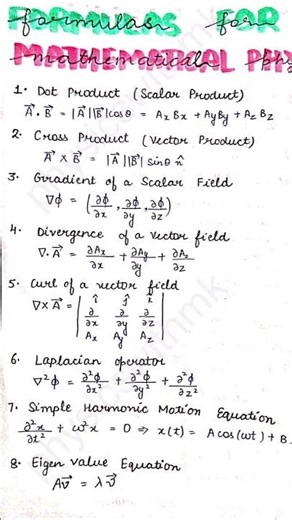 FORMULAS FOR
formulas for
MATHEMATICAL PHY
mathematical phy
1. Dot Product (Scalar Product)
A⃗.B⃗ = |A⃗||B⃗|cosθ = AxBx + AyBy + AzBz
2. Cross Product (Vector Product)
A⃗ x B⃗ = |A⃗||B⃗| sinθ n̂
3. Gradient of a Scalar Field
∇ϕ = (∂ϕ/∂x, ∂ϕ/∂y, ∂ϕ/∂z)
4. Divergence of a Vector field
∇.A⃗ = ∂Ax/∂x + ∂Ay/∂y + ∂Az/∂z
5. Curl of a vector field
î ĵ k̂
∇xA⃗ = | ∂/∂x ∂/∂y ∂/∂z |
Ax Ay Az
6. Laplacian operator
∇²ϕ = ∂²ϕ/∂x² + ∂²ϕ/∂y² + ∂²ϕ/∂z²
7. Simple Harmonic Motion Equation
∂²x/∂t² + ω²x = 0 ⇒ x(t) = A cos(ωt) + B
8. Eigen value Equation
Av⃗ = λv⃗